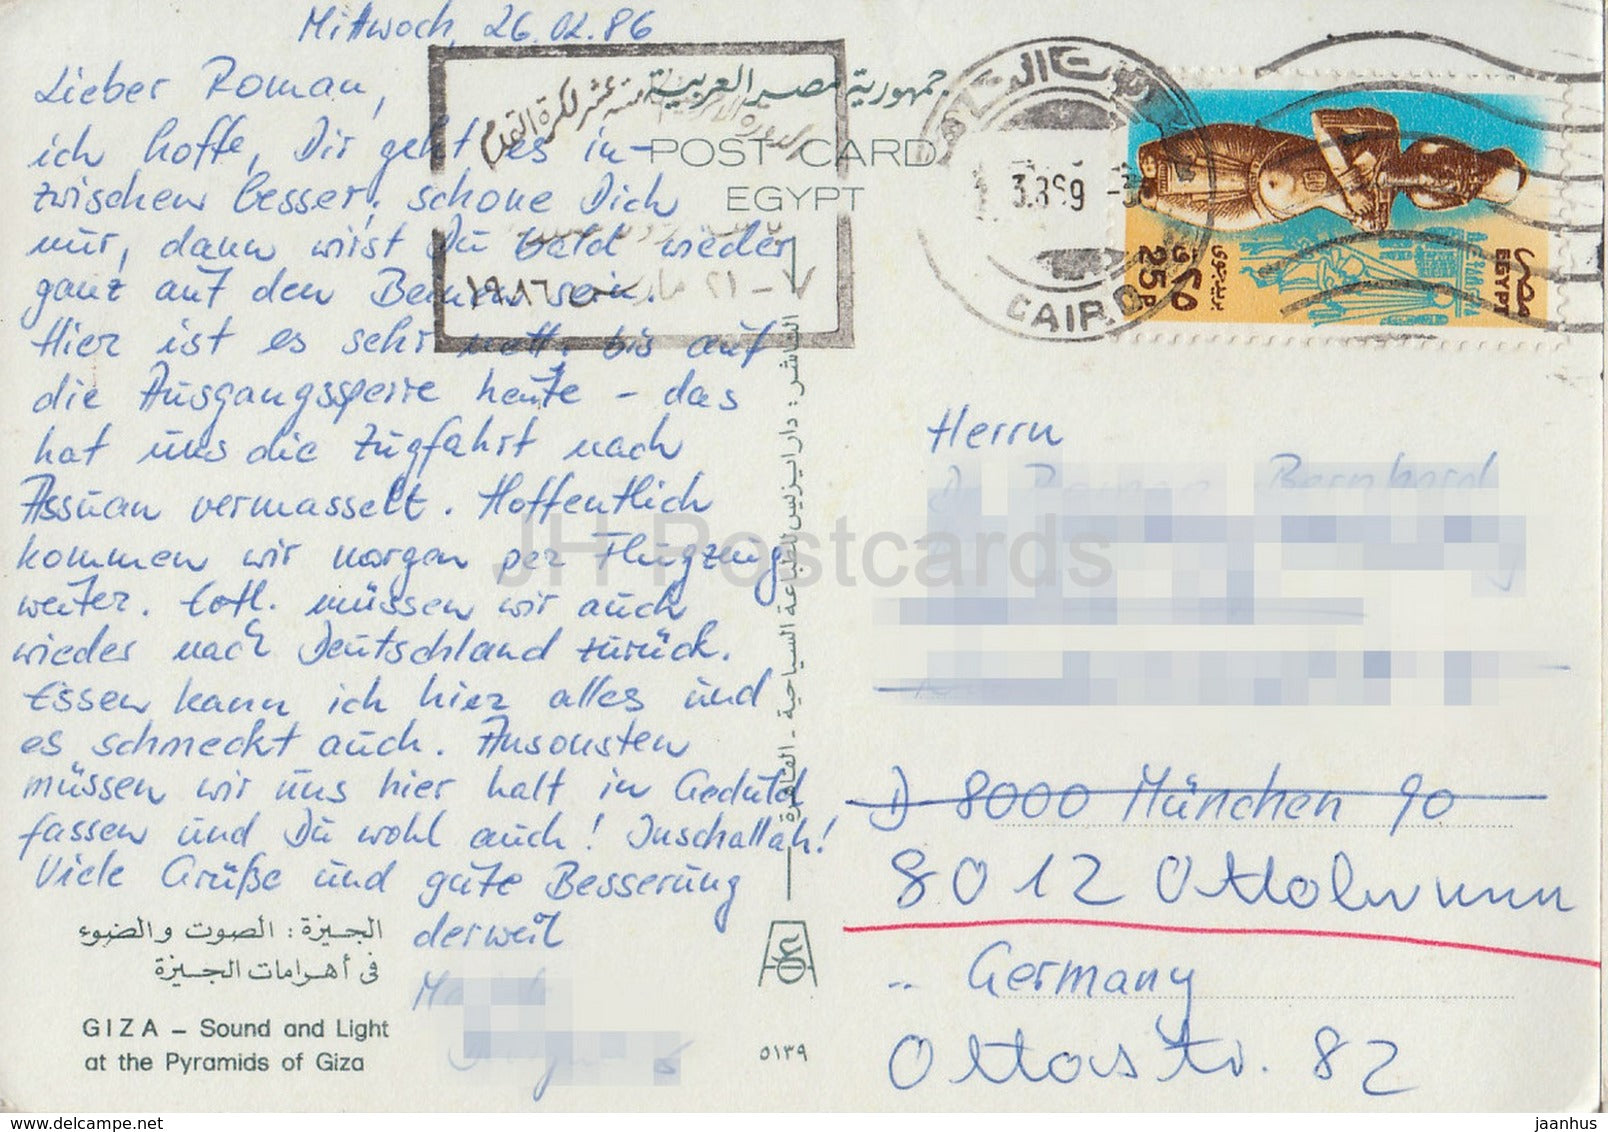 Mittwoch, 26.02.86
Lieber Roman,
ich hoffe, Dir geht es in-
zwischen besser, schone Dich
nur, dann wirst Du bald wieder
ganz auf den Beinen sein.
Hier ist es sehr nett, bis auf
die Ausgangssperre heute - das
hat uns die Zugfahrt nach
Assuan vermasselt. Hoffentlich
kommen wir morgen per Flugzeug
weiter. Evtl. müssen wir auch
wieder nach Deutschland zurück.
Essen kann ich hier alles und
es schmeckt auch. Ansonsten
müssen wir uns hier halt in Geduld
fassen und Du wohl auch! Inschallah!
Viele Grüße und gute Besserung
derweil
جمهورية مصر العربية
POST CARD
EGYPT
لكرة القدم
١٩٨٦
٢١ مارس
CAIRO
٢٥
25 P
مصر
EGYPT
الناشر : دار ايزيس للطباعة السياحية - القاهرة
Herrn
Bernhard
D 8000 München 90
8012 Ottobrunn
Germany
Ottostr. 82
الجيزة : الصوت والضوء
فى أهرامات الجيزة
GIZA – Sound and Light
at the Pyramids of Giza
٥١٣٩
JH Postcards
delcampe.net
jaanhus